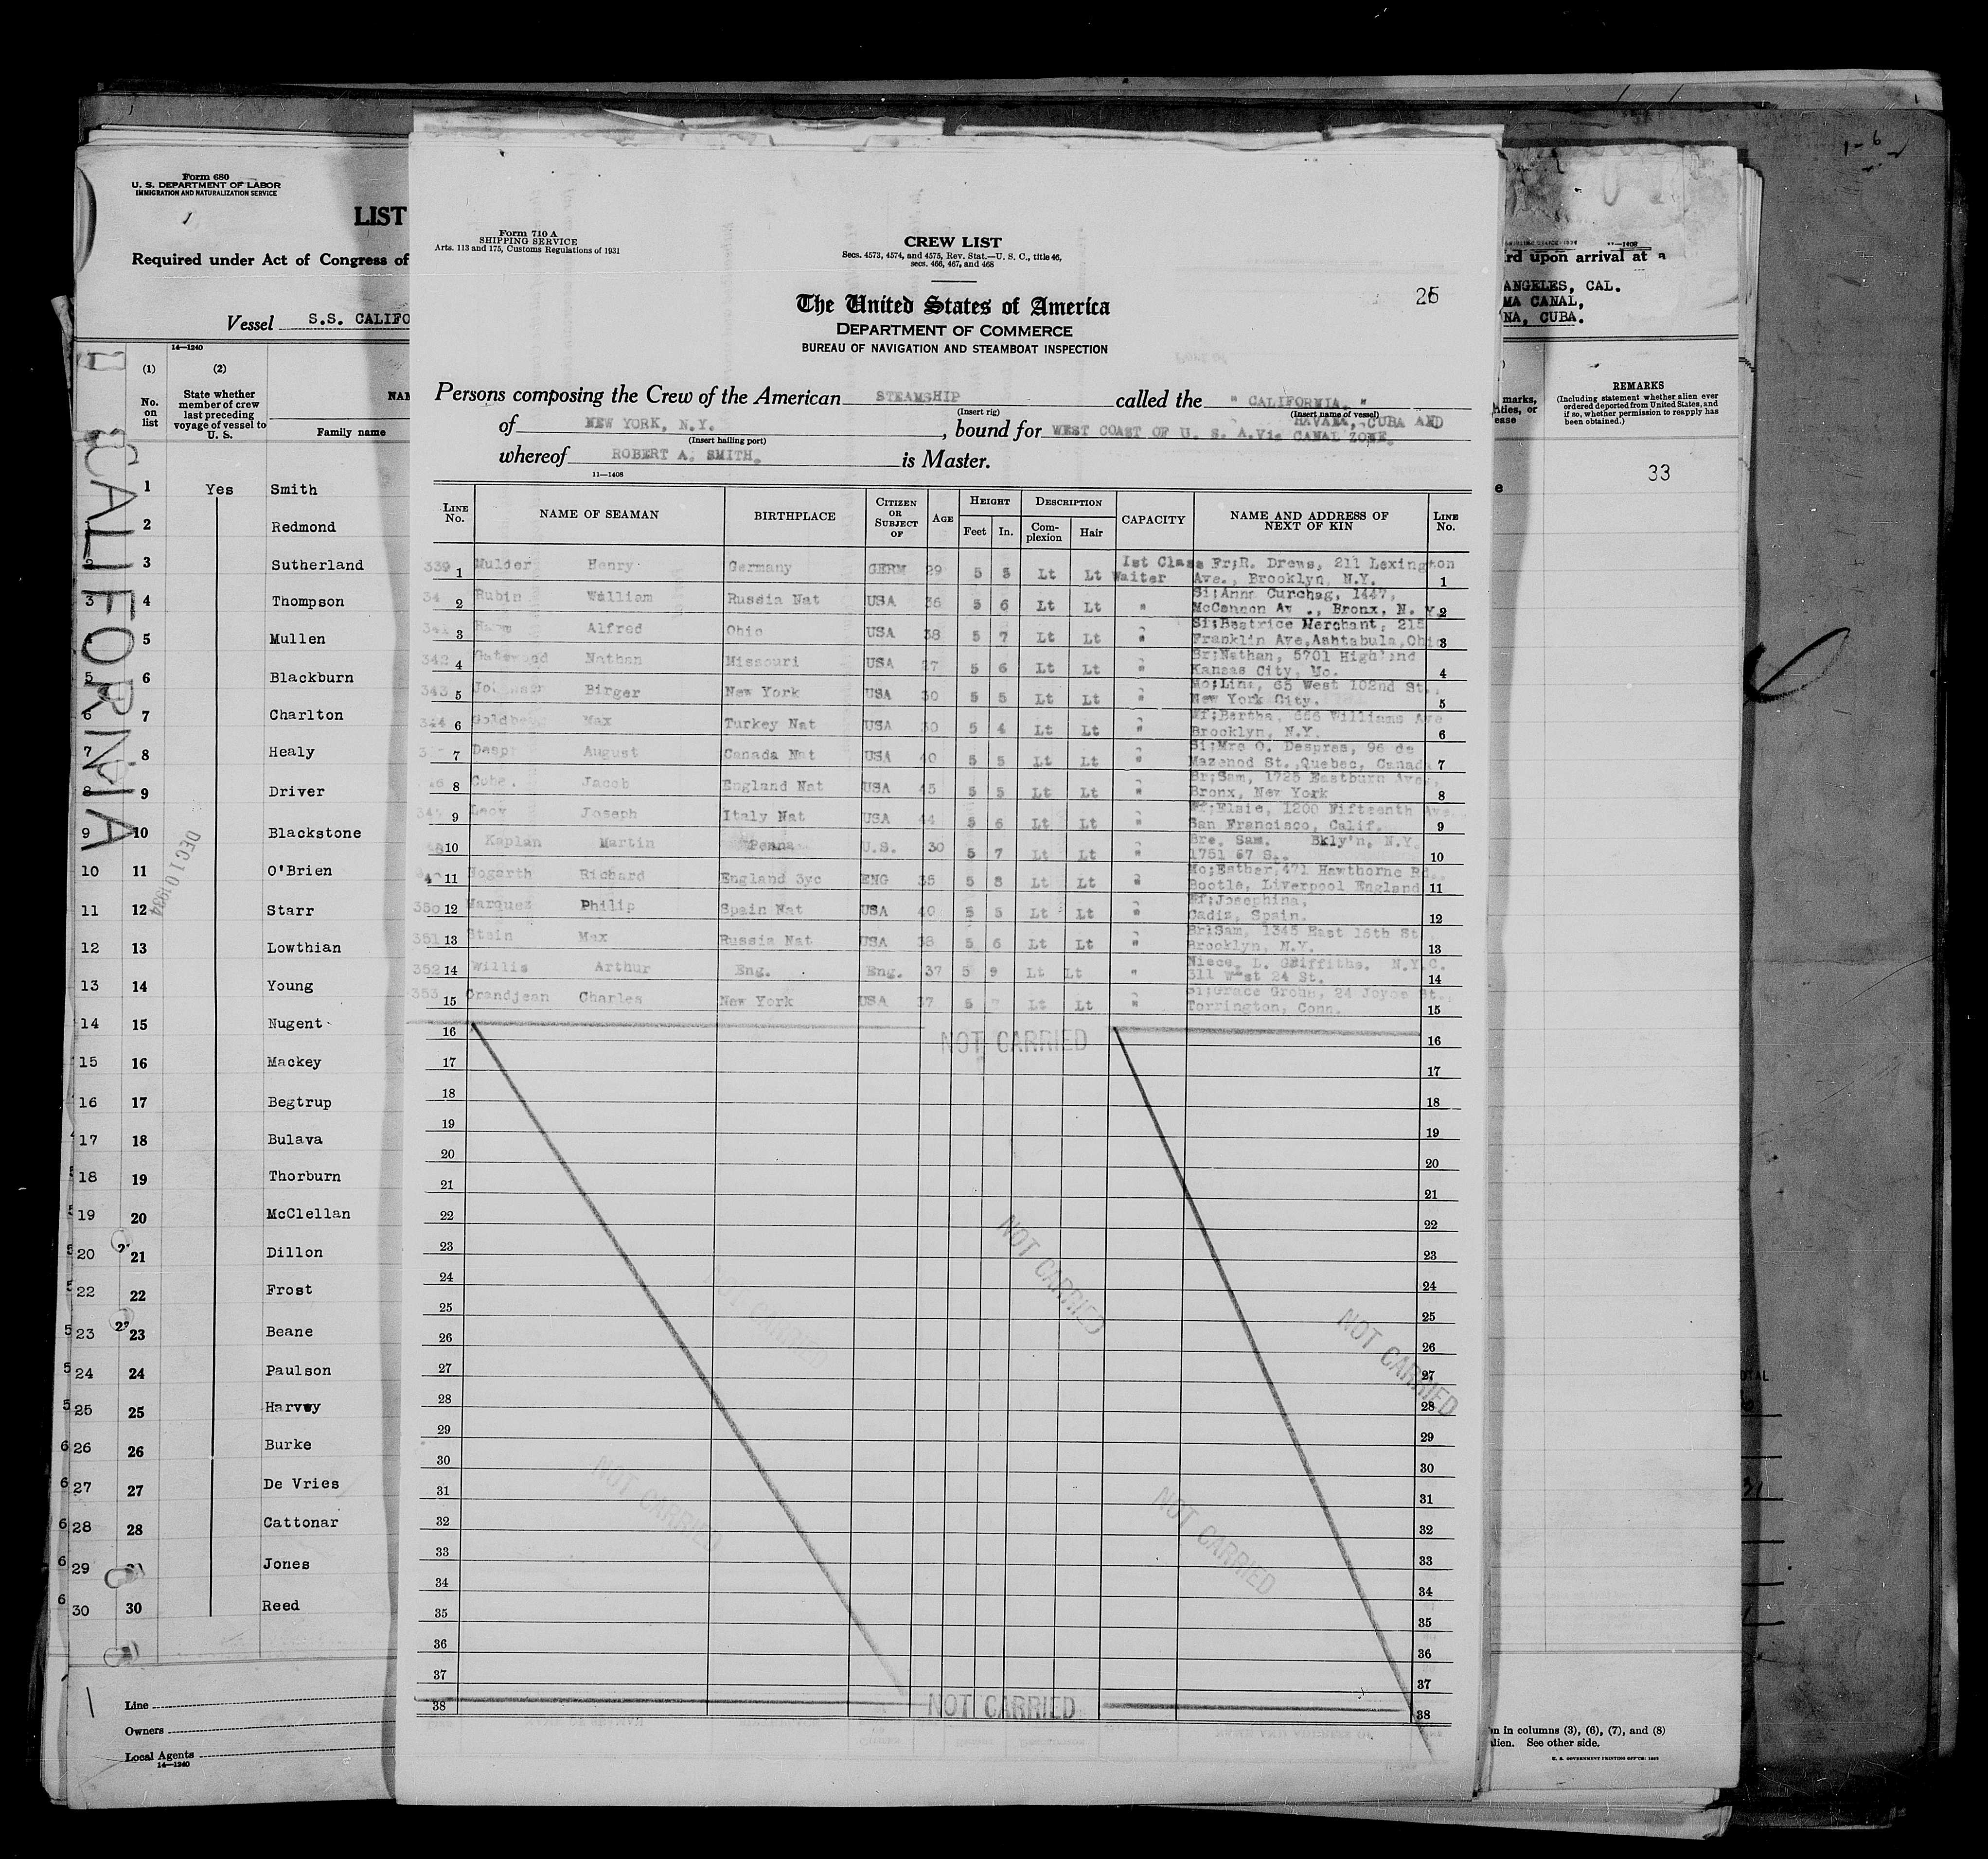 Form 680
U. S. DEPARTMENT OF LABOR
IMMIGRATION AND NATURALIZATION SERVICE
LIST
Required under Act of Congress of
Vessel S.S. CALIFO
14—1240
(1) (2)
No. on list
State whether member of crew last preceding voyage of vessel to U. S.
NAM
Family name
CALIFORNIA
DEC 10 1934
1 Yes Smith
2 Redmond
3 Sutherland
3 4 Thompson
5 Mullen
5 6 Blackburn
6 7 Charlton
7 8 Healy
8 9 Driver
9 10 Blackstone
10 11 O'Brien
11 12 Starr
12 13 Lowthian
13 14 Young
14 15 Nugent
15 16 Mackey
16 17 Begtrup
17 18 Bulava
18 19 Thorburn
19 20 McClellan
20 21 Dillon
22 22 Frost
23 23 Beane
24 24 Paulson
25 25 Harvey
26 26 Burke
27 27 De Vries
28 28 Cattonar
29 Jones
30 30 Reed
Line
Owners
Local Agents
14—1240
Form 710 A
SHIPPING SERVICE
Arts. 113 and 175, Customs Regulations of 1931
CREW LIST
Secs. 4573, 4574, and 4575, Rev. Stat.—U. S. C., title 46,
secs. 466, 467, and 468
The United States of America
DEPARTMENT OF COMMERCE
BUREAU OF NAVIGATION AND STEAMBOAT INSPECTION
Persons composing the Crew of the American STEAMSHIP called the " CALIFORNIA. "
(Insert rig) (Insert name of vessel)
HAVANA, CUBA AND
of NEW YORK, N.Y. , bound for WEST COAST OF U. S. A. Via CANAL ZONE.
(Insert hailing port)
whereof ROBERT A. SMITH. is Master.
11—1408
LINE No. NAME OF SEAMAN BIRTHPLACE CITIZEN OR SUBJECT OF AGE HEIGHT Feet In. DESCRIPTION Complexion Hair CAPACITY NAME AND ADDRESS OF NEXT OF KIN LINE No.
339 1 Mulder Henry Germany GERM 29 5 5 Lt Lt 1st Class Waiter Fr;R. Drews, 211 Lexington Ave., Brooklyn, N.Y. 1
2 Rubin William Russia Nat USA 36 5 6 Lt Lt " Si;Anna Curchag, 1447, McCannon Av ., Bronx, N. Y. 2
3 Alfred Ohio USA 38 5 7 Lt Lt " Si;Beatrice Merchant, 215 Franklin Ave,Ashtabula,Ohio 3
342 4 Gatewood Nathan Missouri USA 27 5 6 Lt Lt " Br;Nathan, 5701 Highland Kansas City, Mo. 4
343 5 Birger New York USA 30 5 5 Lt Lt " Mo;Lina, 65 West 102nd St., New York City. 5
344 6 Max Turkey Nat USA 30 5 4 Lt Lt " Wf;Bertha, 666 Williams Ave Brooklyn, N.Y. 6
7 August Canada Nat USA 40 5 5 Lt Lt " Si;Mrs O. Despres, 96 de Mazenod St.,Quebec, Canada 7
8 Jacob England Nat USA 45 5 5 Lt Lt " Br;Sam, 1725 Eastburn Ave., Bronx, New York 8
9 Joseph Italy Nat USA 44 5 6 Lt Lt " Wf;Elsie, 1200 Fifteenth Ave. San Francisco, Calif. 9
10 Kaplan Martin Penna U.S. 30 5 7 Lt Lt " Bro. Sam. Bkly'n, N.Y. 1751 67 S.. 10
11 Hogarth Richard England 3yc ENG 35 5 8 Lt Lt " Mo;Esther,471 Hawthorne Rd., Bootle, Liverpool England 11
350 12 Marquez Philip Spain Nat USA 40 5 5 Lt Lt " Wf;Josephina, Cadiz, Spain. 12
351 13 Stein Max Russia Nat USA 38 5 6 Lt Lt " Br;Sam, 1345 East 16th St Brooklyn, N.Y. 13
352 14 Willis Arthur Eng. Eng. 37 5 9 Lt Lt " Niece, L. Griffiths. N.Y.C. 311 West 24 St. 14
353 15 Grandjean Charles New York USA 37 5 Lt Lt " Si;Grace Grohs, 24 Joyce St., Torrington, Conn. 15
16 NOT CARRIED 16
17 17
18 18
19 19
20 20
21 21
22 22
23 23
24 24
25 25
26 26
27 27
28 28
29 29
30 30
31 31
32 32
33 33
34 34
35 35
36 36
37 37
38 NOT CARRIED 38
NOT CARRIED
NOT CARRIED
NOT CARRIED
NOT CARRIED
NOT CARRIED
rd upon arrival at a
ANGELES, CAL.
MA CANAL,
NA, CUBA.
REMARKS
(Including statement whether alien ever ordered deported from United States, and if so, whether permission to reapply has been obtained.)
33
n in columns (3), (6), (7), and (8)
alien. See other side.
U. S. GOVERNMENT PRINTING OFFICE: 1931